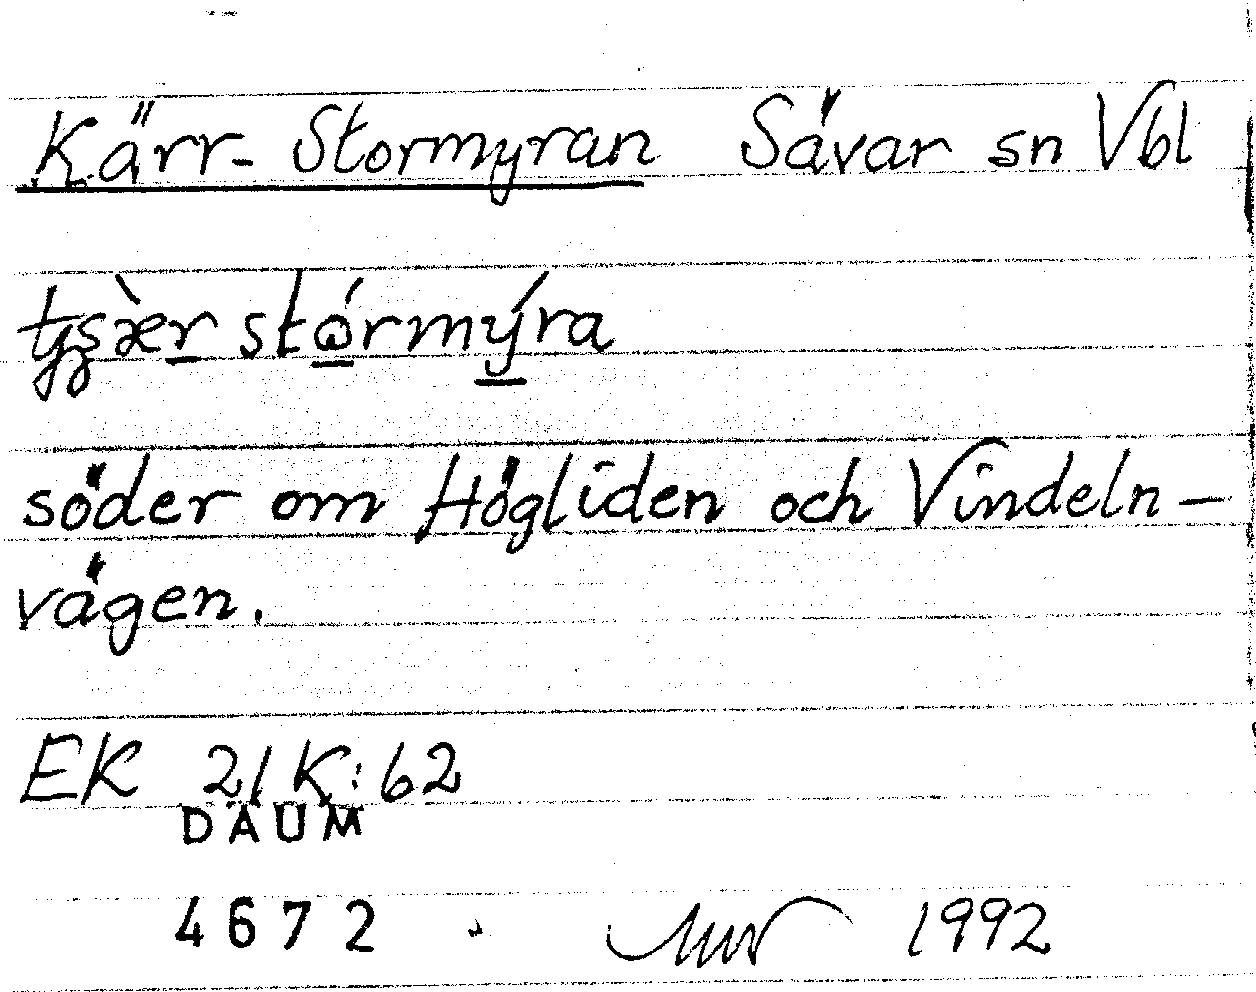 Kärr-Stormyran Sävar sn Vbl
stórmýra
söder om Högliden och Vindeln-
vägen.
EK 21K:62
DAUM
4672 1992